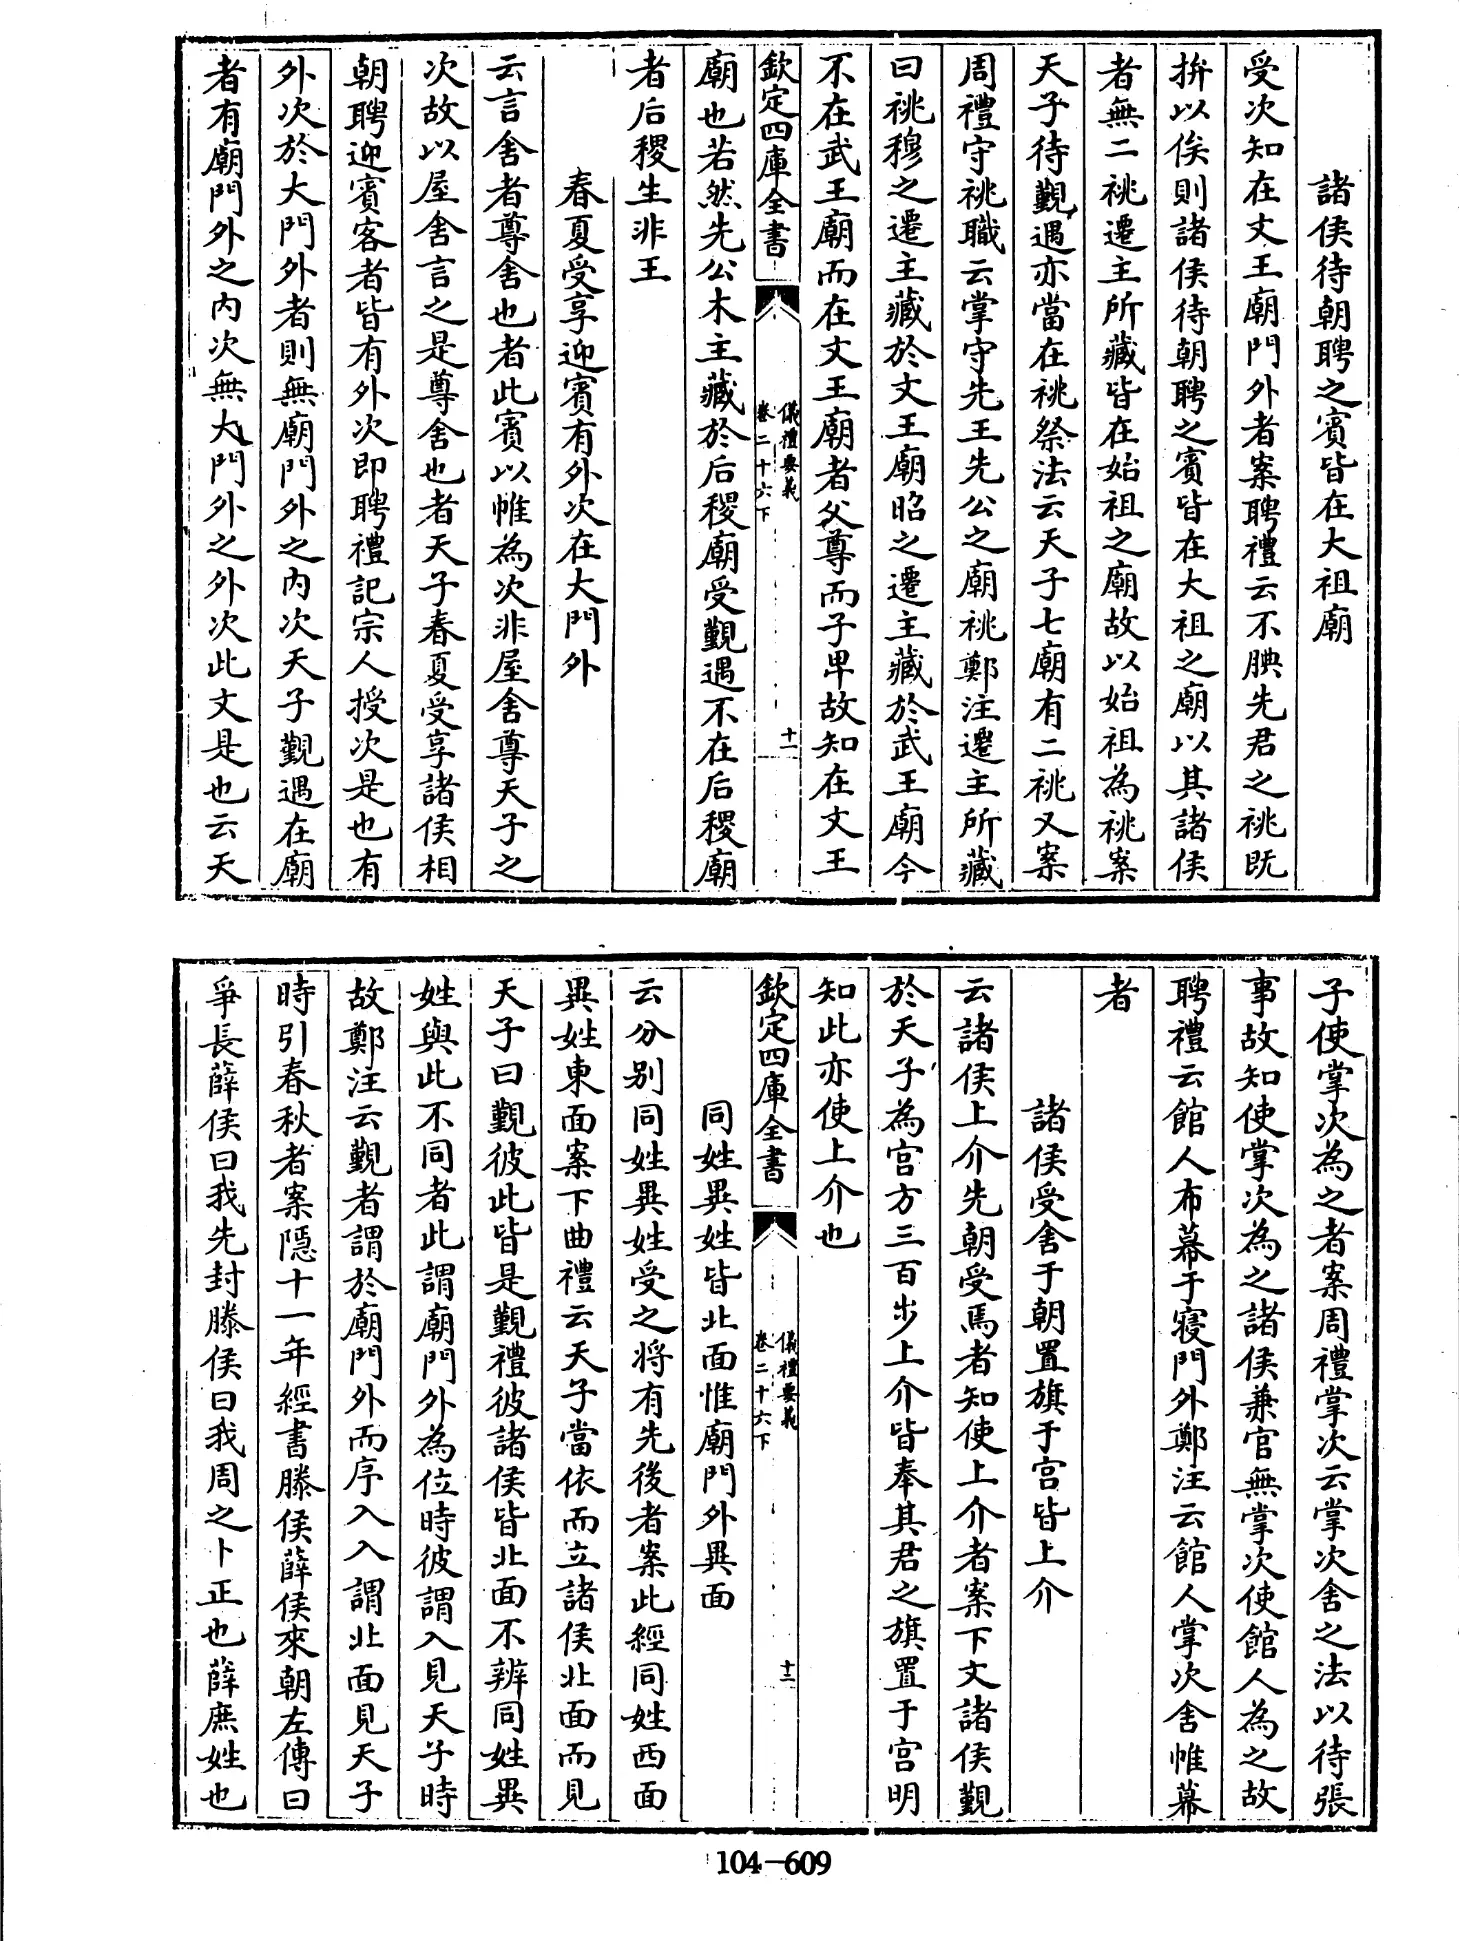 諸侯待朝聘之賓皆在大祖廟
受次知在文王廟門外者案聘禮云不腆先君之祧既
拚以俟則諸侯待朝聘之賓皆在大祖之廟以其諸侯
者無二祧遷主所藏皆在始祖之廟故以始祖為祧案
天子待覲遇亦當在祧祭法云天子七廟有二祧又案
周禮守祧職云掌守先王先公之廟祧鄭注遷主所藏
曰祧穆之遷主藏於文王廟昭之遷主藏於武王廟今
不在武王廟而在文王廟者父尊而子卑故知在文王
欽定四庫全書
儀禮要義
卷二十六下
十一
廟也若然先公木主藏於后稷廟受覲遇不在后稷廟
者后稷生非王
春夏受享迎賓有外次在大門外
云言舍者尊舍也者此賓以帷為次非屋舍尊天子之
次故以屋舍言之是尊舍也者天子春夏受享諸侯相
朝聘迎賓客者皆有外次即聘禮記宗人授次是也有
外次於大門外者則無廟門外之內次天子覲遇在廟
者有廟門外之內次無大門外之外次此文是也云天
子使掌次為之者案周禮掌次云掌次舍之法以待張
事故知使掌次為之諸侯兼官無掌次使館人為之故
聘禮云館人布幕于寢門外鄭注云館人掌次舍帷幕
者
諸侯受舍于朝置旗于宮皆上介
云諸侯上介先朝受焉者知使上介者案下文諸侯覲
於天子為宮方三百步上介皆奉其君之旗置于宮明
知此亦使上介也
欽定四庫全書
儀禮要義
卷二十六下
十二
同姓異姓皆北面惟廟門外異面
云分別同姓異姓受之將有先後者案此經同姓西面
異姓東面案下曲禮云天子當依而立諸侯北面而見
天子曰覲彼此皆是覲禮彼諸侯皆北面不辨同姓異
姓與此不同者此謂廟門外為位時彼謂入見天子時
故鄭注云覲者謂於廟門外而序入入謂北面見天子
時引春秋者案隱十一年經書滕侯薛侯來朝左傳曰
爭長薛侯曰我先封滕侯曰我周之卜正也薛庶姓也
104-609